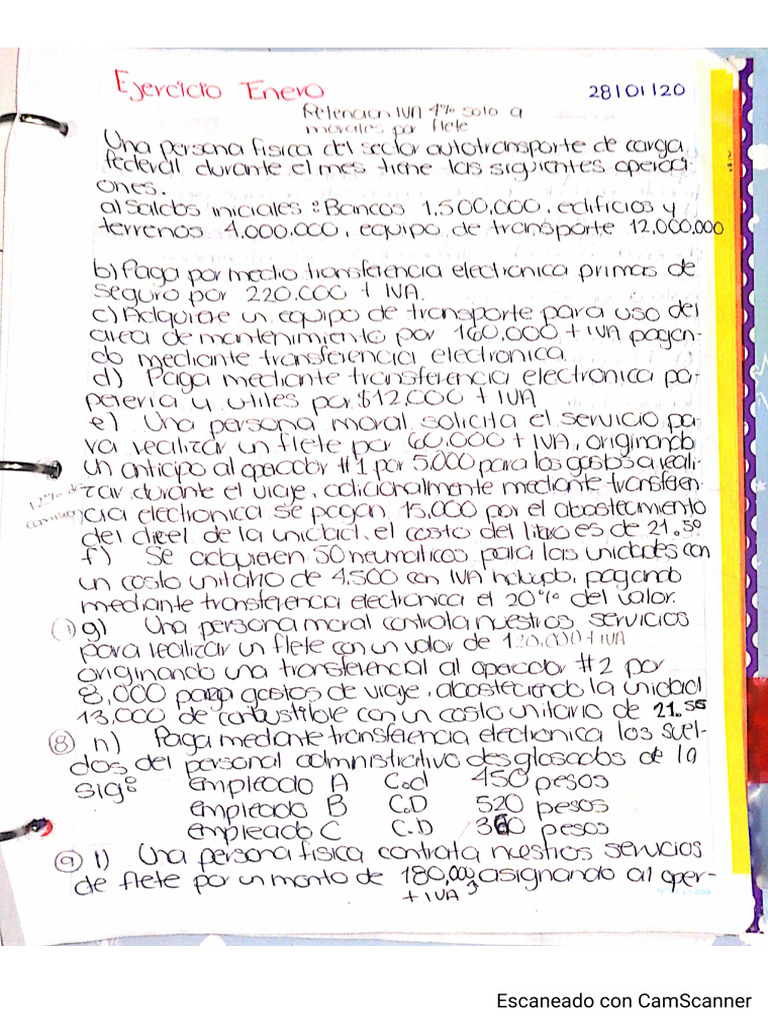 Ejercicio Enero
28/01/20
Retencion IVA 4% solo a
morales por flete
Una persona fisica del sector autotransporte de carga
federal durante el mes tiene las siguientes operaci-
ones.
a) Saldos iniciales: Bancos 1.500,000, edificios y
terrenos 4.000.000, equipo de transporte 12,000,000
b) Paga por medio transferencia electronica primas de
seguro por 220.000 + IVA.
c) Adquiere un equipo de transporte para uso del
area de mantenimiento por 160,000 + IVA pagan-
do mediante transferencia electronica.
d) Paga mediante transferencia electronica pa-
peleria y utiles por $12,000 + IVA
e) Una persona moral solicita el servicio pa-
ra realizar un flete por 60,000 + IVA, originando
un anticipo al operador #1 por 5,000 para los gastos a reali-
zar durante el viaje, adicionalmente mediante transferen-
12% de
comision
cia electronica se pagan 15,000 por el abastecimiento
del diesel de la unidad, el costo del litro es de 21.50
f) Se adquieren 50 neumaticos para las unidades con
un costo unitario de 4,500 con IVA incluido, pagando
mediante transferencia electronica el 20% del valor.
g) Una persona moral contrata nuestros servicios
para realizar un flete con un valor de 120,000 + IVA
originando una transferencial al operador #2 por
8,000 para gastos de viaje, abasteciendo la unidad
13,000 de combustible con un costo unitario de 21.55
8 h) Paga mediante transferencia electronica los suel-
dos del personal administrativo desglosados de la
sig: empleado A C.d 450 pesos
empleado B C.D 520 pesos
empleado C C.D 360 pesos
9 i) Una persona fisica contrata nuestros servicios
de flete por un monto de 180,000, asignando al oper-
+ IVA
Escaneado con CamScanner